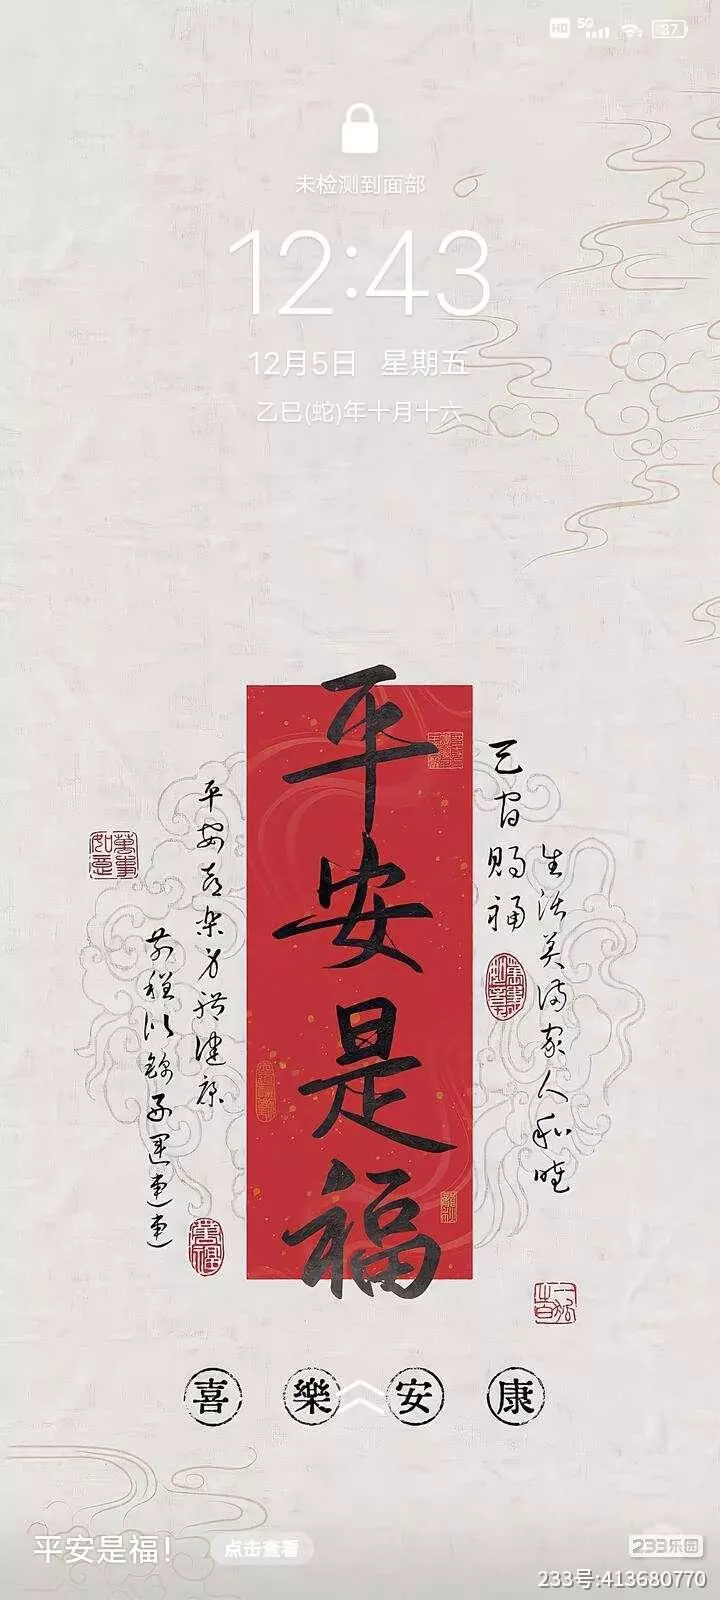 HD 5G 37
未检测到面部
12:43
12月5日 星期五
乙巳(蛇)年十月十六
平安是福
赐福
生活美满家人和睦
平安喜乐身体健康
前程似锦好运连连
萬事如意
萬福
喜樂安康
平安是福！ 点击查看
233乐园
233号:413680770